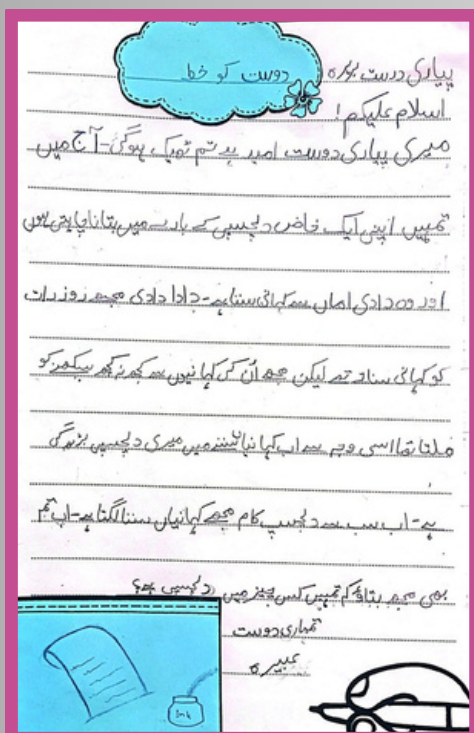 دوست کو خط
پیاری دوست
اسلام علیکم!
میری پیاری دوست امید ہے تم ٹھیک ہوگی۔ آج میں
تمہیں اپنی ایک خاص دلچسپی کے بارے میں بتانا چاہتی ہوں
اور وہ دادی اماں سے کہانی سننا ہے۔ دادا دادی مجھے روز رات
کو کہانی سناتے تھے لیکن مجھے اُن کی کہانیوں سے کچھ نہ کچھ سیکھنے کو
ملتا تھا اسی وجہ سے اب کہانیاں سننے میں میری دلچسپی بڑھ گی
ہے۔ اب سب سے دلچسپ کام مجھے کہانیاں سننا لگتا ہے۔ اب تم
بھی مجھے بتاؤ کہ تمہیں کس چیز میں دلچسپی ہے؟
تمہاری دوست
عبیرہ
Ink